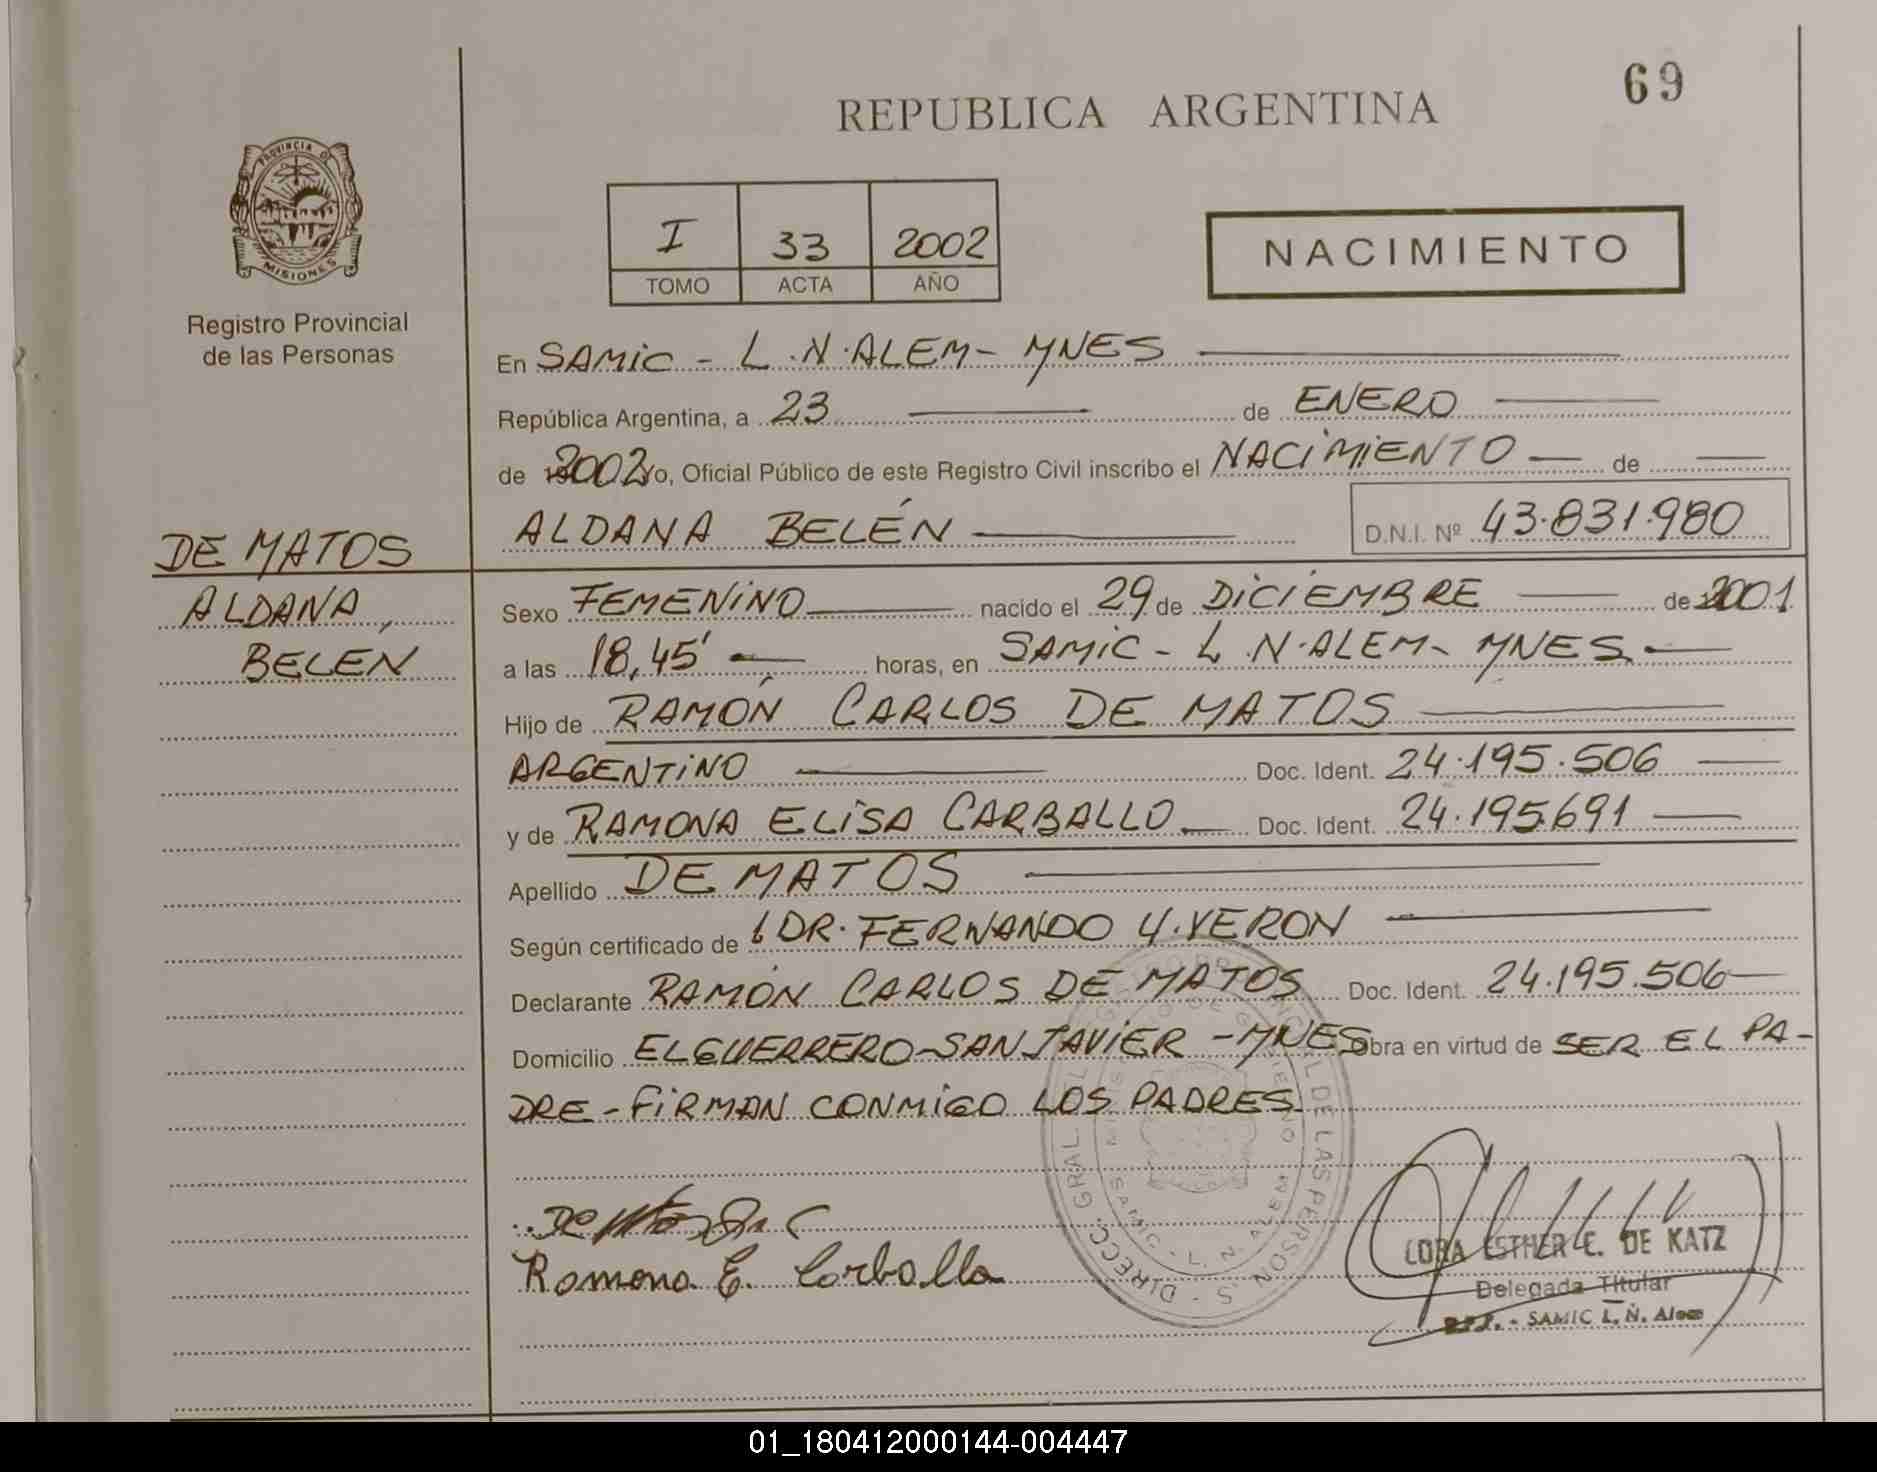 69
REPUBLICA ARGENTINA
PROVINCIA DE
MISIONES
Registro Provincial
de las Personas
I 33 2002
TOMO ACTA AÑO
NACIMIENTO
En SAMIC - L.N.ALEM - MNES
República Argentina, a 23 de ENERO
de 2002 Yo, Oficial Público de este Registro Civil inscribo el NACIMIENTO de
ALDANA BELÉN D.N.I. Nº 43.831.980
DE MATOS
ALDANA,
BELEN
Sexo FEMENINO nacido el 29 de DICIEMBRE de 2001
a las 18,45' horas, en SAMIC - L.N.ALEM - MNES.
Hijo de RAMÓN CARLOS DE MATOS
ARGENTINO Doc. Ident. 24.195.506
y de RAMONA ELISA CARBALLO Doc. Ident. 24.195691
Apellido DE MATOS
Según certificado de DR. FERNANDO Y. VERON
Declarante RAMÓN CARLOS DE MATOS Doc. Ident. 24.195.506
Domicilio EL GUERRERO - SAN JAVIER - MNES Obra en virtud de SER EL PA-
DRE - FIRMAN CONMIGO LOS PADRES
Ramona E. Carballo
LORA ESTHER C. DE KATZ
Delegada Titular
SAMIC L. N. Alem
01_180412000144-004447